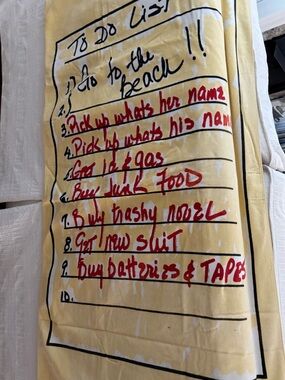 TO DO LIST
1. Go to the
2. beach!!
3. Pick up whats her name
4. Pick up whats his nam
5. Get ice & gas
6. Buy Junk FOOD
7. Buy trashy novel
8. Get new suit
9. Buy batteries & TAPES
10.